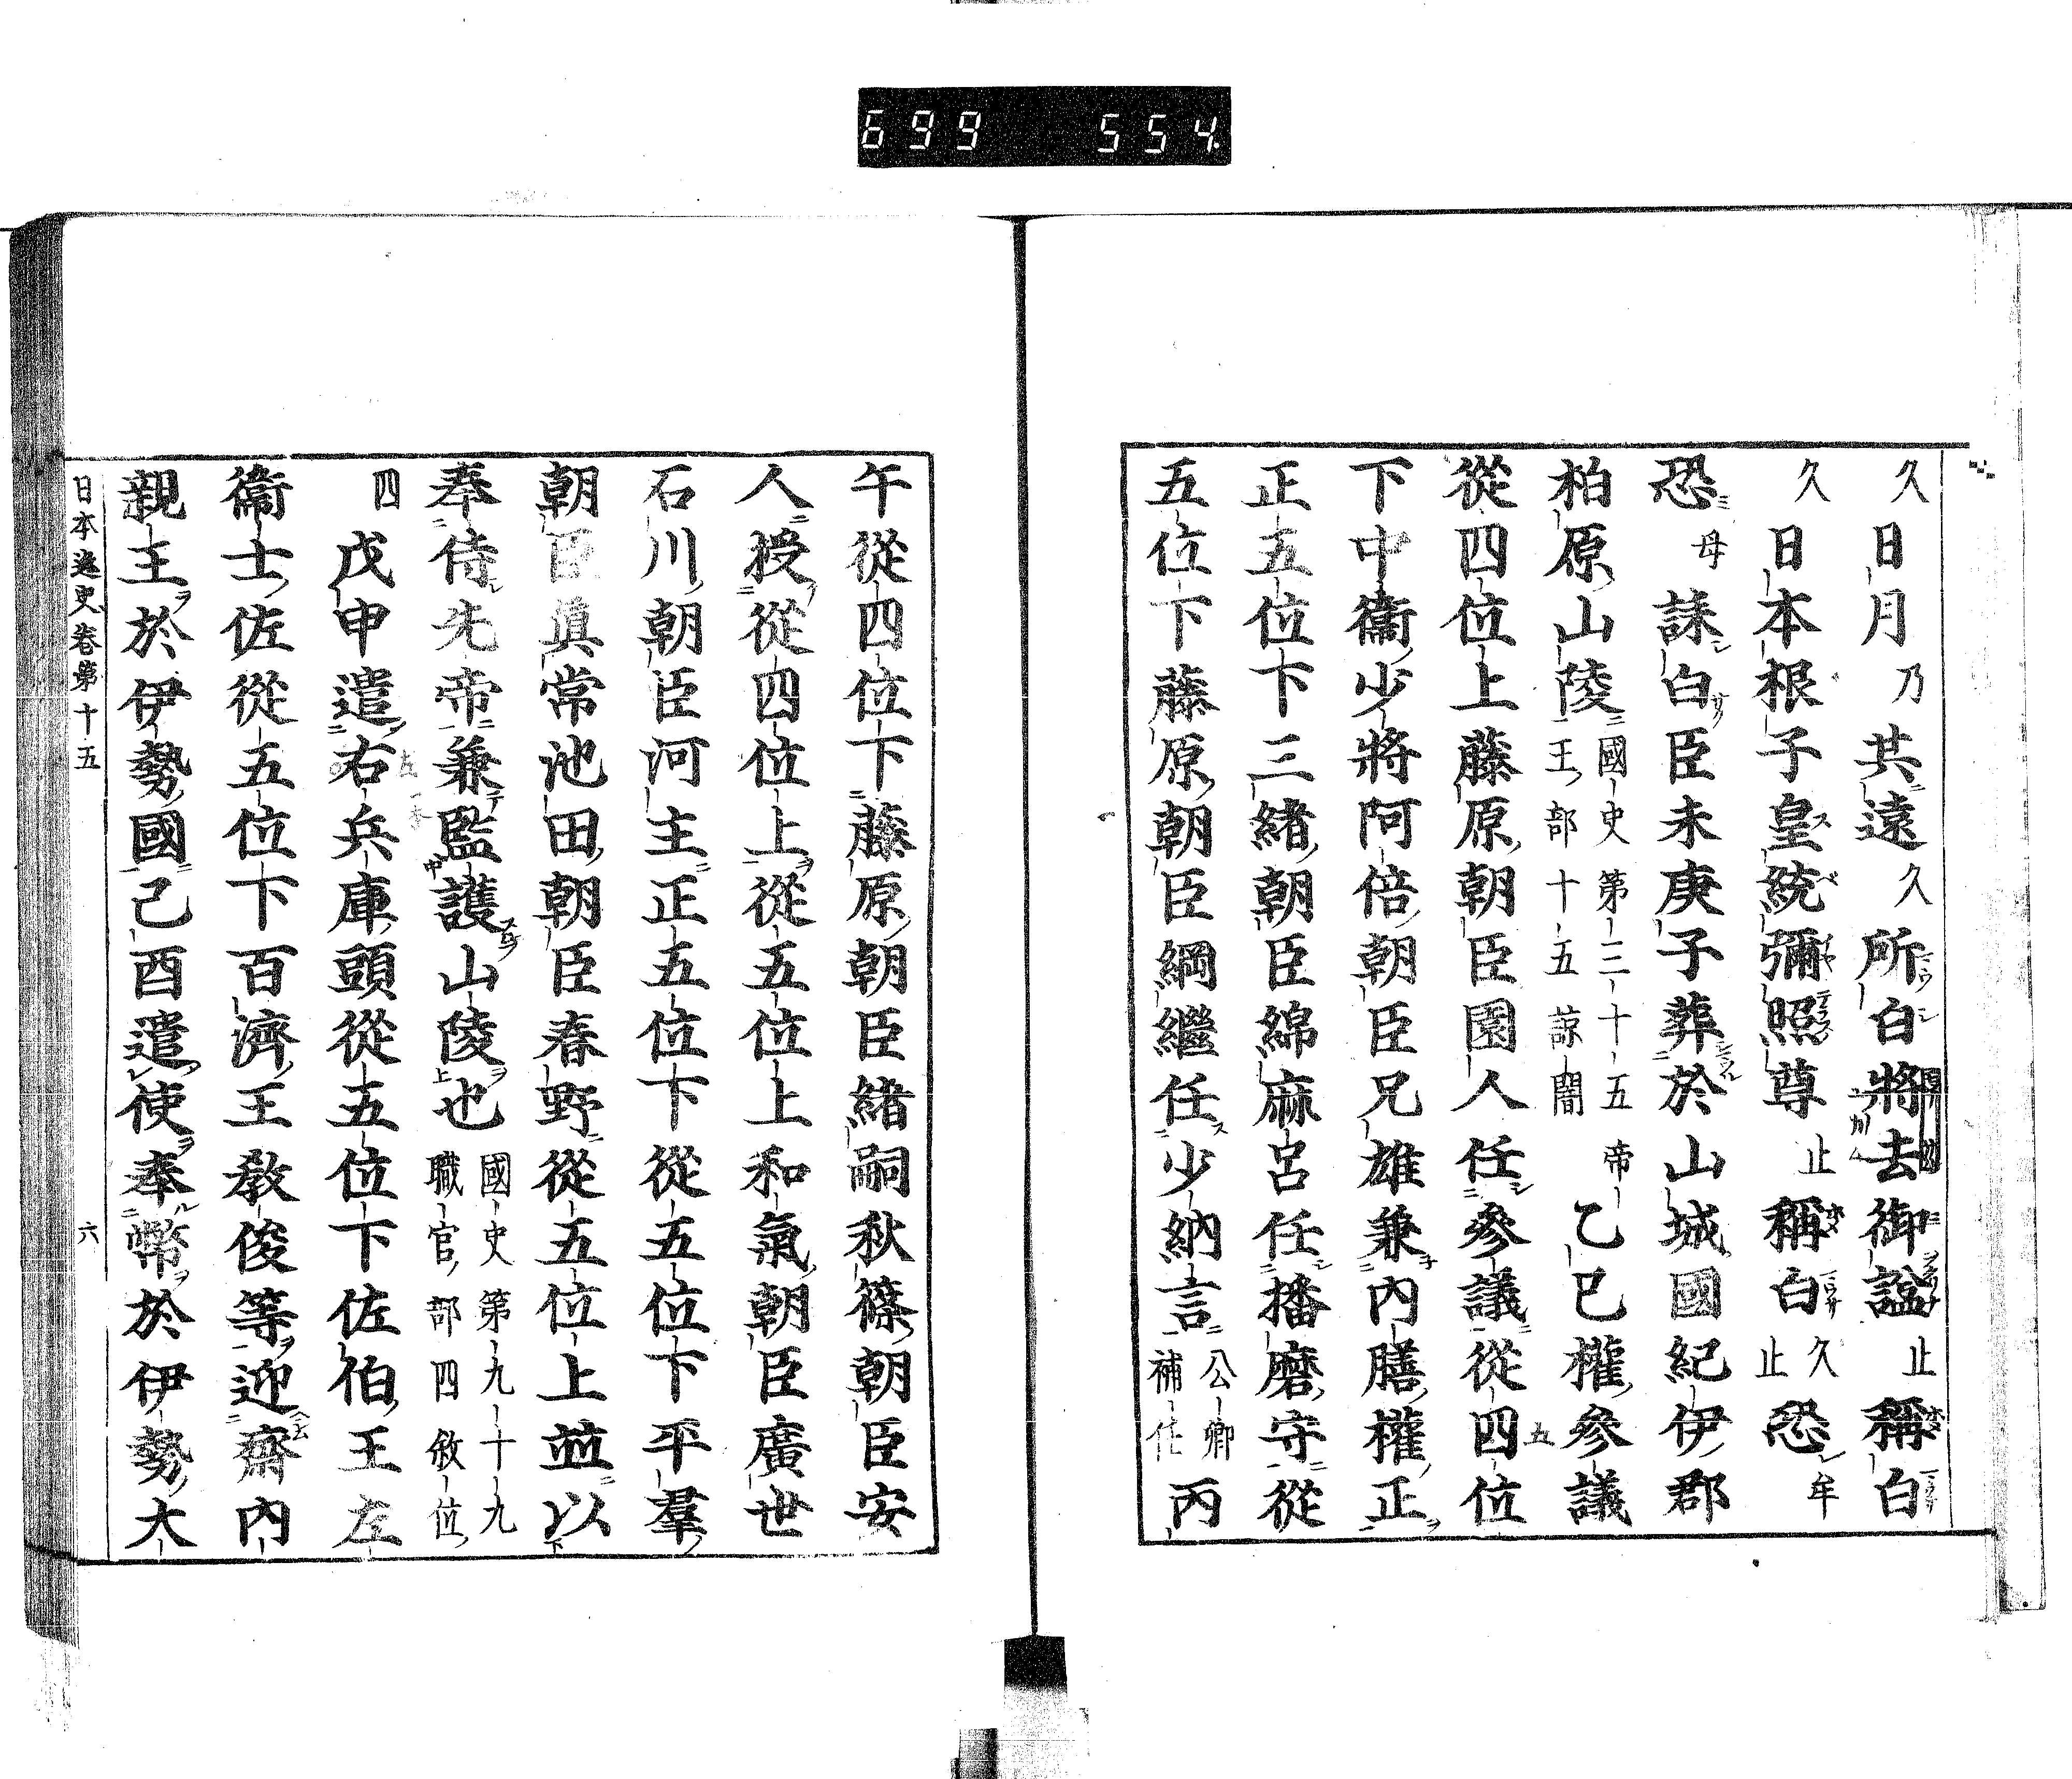 699 554
久日月乃共遠久所白將去御諡止稱白
久日本根子皇統彌照尊止稱白久止恐牟
恐母誄白臣未庚子葬於山城國紀伊郡
柏原山陵國史第三十五帝王部十五諒闇乙巳權參議
從四位上藤原朝臣園人任參議從四位
下中衞少將阿倍朝臣兄雄兼內膳權正
正五位下三緒朝臣綿麻呂任播磨守從
五位下藤原朝臣綱繼任少納言公卿補任丙
午從四位下藤原朝臣緒嗣秋篠朝臣安
人授從四位上從五位上和氣朝臣廣世
石川朝臣河主正五位下從五位下平羣
朝臣眞常池田朝臣春野從五位上並以
奉侍先帝兼監護山陵也國史第九十九職官部四敘位
四戊申遣右兵庫頭從五位下佐伯王左
衞士佐從五位下百濟王教俊等迎齋內
親王於伊勢國己酉遣使奉幣於伊勢大
日本逸史卷第十五 六